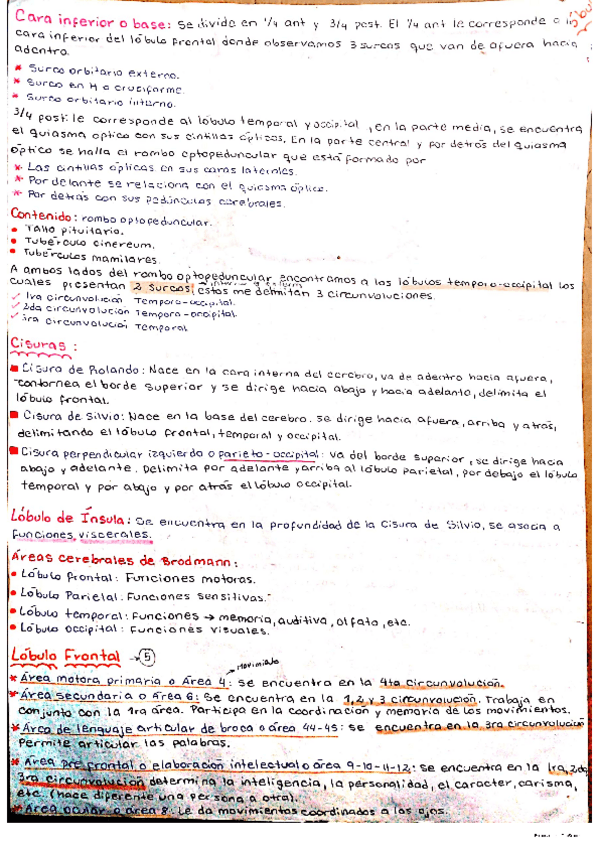 Cara inferior o base: Se divide en 1/4 ant y 3/4 post. El 1/4 ant le corresponde a la
cara inferior del lóbulo frontal donde observamos 3 surcos que van de afuera hacia
adentro.
* Surco orbitario externo.
* Surco en H o cruciforme.
* Surco orbitario interno.
3/4 post: le corresponde al lóbulo temporal y occipital, en la parte media, se encuentra
el quiasma optico con sus cintillas ópticas. En la parte central y por detrás del quiasma
óptico se halla el rombo optopeduncular que está formado por
* Las cintillas ópticas en sus caras laterales.
* Por delante se relaciona con el quiasma óptico.
* Por detrás con sus pedúnculos cerebrales.
Contenido: rombo optopeduncular.
• Tallo pituitario.
• Tubérculo cinereum.
• Tubérculos mamilares.
A ambos lados del rombo optopeduncular encontramos a los lóbulos temporo-occipital los
cuales presentan 2 surcos, estos me delimitan 3 circunvoluciones.
✓ 1ra circunvolución Temporo-occipital.
✓ 2da circunvolución Temporo-occipital.
✓ 3ra circunvolución Temporal
Cisuras:
■ Cisura de Rolando: Nace en la cara interna del cerebro, va de adentro hacia afuera,
contornea el borde superior y se dirige hacia abajo y hacia adelante, delimita el
lóbulo frontal.
■ Cisura de Silvio: Nace en la base del cerebro. se dirige hacia afuera, arriba y atrás,
delimitando el lóbulo frontal, temporal y occipital.
■ Cisura perpendicular izquierdo o parieto-occipital: va del borde superior, se dirige hacia
abajo y adelante. Delimita por adelante y arriba al lóbulo parietal, por debajo el lóbulo
temporal y por abajo y por atrás el lóbulo occipital.
Lóbulo de Ínsula: Se encuentra en la profundidad de la Cisura de Silvio, se asocia a
funciones viscerales.
Áreas cerebrales de Brodmann:
• Lóbulo frontal: Funciones motoras.
• Lóbulo Parietal: Funciones sensitivas.
• Lóbulo temporal: Funciones → memoria, auditiva, olfato, etc.
• Lóbulo occipital: Funciones visuales.
Lóbulo Frontal → 5
movimiento
* Área motora primaria o Área 4: se encuentra en la 4ta circunvolución.
* Área secundaria o Área 6: Se encuentra en la 1, 2 y 3 circunvolución. Trabaja en
conjunto con la 1ra área. Participa en la coordinación y memoria de los movimientos.
* Área de lenguaje articular de broca o área 44-45: se encuentra en la 3ra circunvolución
Permite articular las palabras.
* Área pre frontal o elaboración intelectual o área 9-10-11-12: se encuentra en la 1ra, 2da,
3ra circunvolución determina la inteligencia, la personalidad, el caracter, carisma,
etc. (hace diferente una persona a otra).
* Área ocular o área 8: Le da movimientos coordinados a los ojos.